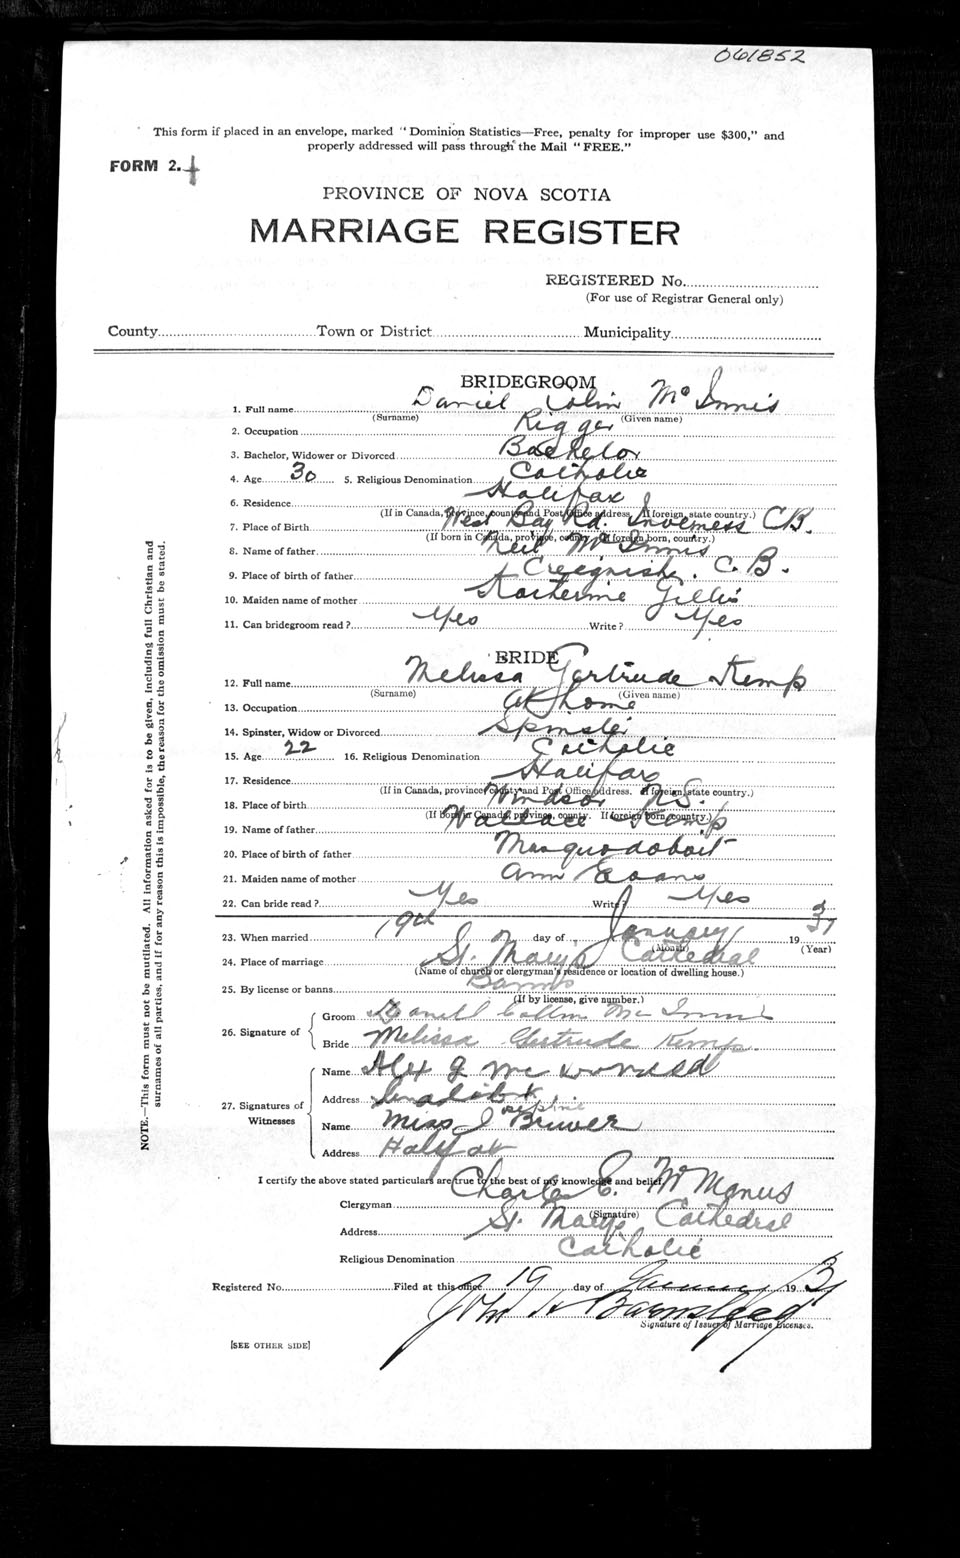 061852
This form if placed in an envelope, marked "Dominion Statistics—Free, penalty for improper use $300," and
properly addressed will pass through the Mail "FREE."
FORM 2.
PROVINCE OF NOVA SCOTIA
MARRIAGE REGISTER
REGISTERED No.
(For use of Registrar General only)
County Town or District Municipality
BRIDEGROOM
1. Full name Daniel Colin McInnis
(Surname) (Given name)
2. Occupation Rigger
3. Bachelor, Widower or Divorced Bachelor
4. Age 30 5. Religious Denomination Catholic
6. Residence Halifax
(If in Canada, province, county and Post Office address. If foreign, state country.)
7. Place of Birth West Bay Rd. Inverness C.B.
(If born in Canada, province, county. If foreign born, country.)
8. Name of father Neil McInnis
9. Place of birth of father Creignish, C.B.
10. Maiden name of mother Katherine Gillis
11. Can bridegroom read? Yes Write? Yes
BRIDE
12. Full name Melissa Gertrude Kemp
(Surname) (Given name)
13. Occupation At home
14. Spinster, Widow or Divorced Spinster
15. Age 22 16. Religious Denomination Catholic
17. Residence Halifax
(If in Canada, province county and Post Office address. If foreign, state country.)
18. Place of birth Windsor N.S.
(If born in Canada, province, county. If foreign born, country.)
19. Name of father Wallace Kemp
20. Place of birth of father Musquodoboit
21. Maiden name of mother Ann Evans
22. Can bride read? Yes Write? Yes
23. When married 19th day of January 1937
(Month) (Year)
24. Place of marriage St. Mary's Cathedral
(Name of church or clergyman's residence or location of dwelling house.)
25. By license or banns Banns
(If by license, give number.)
26. Signature of
Groom Daniel Collin McInnis
Bride Melissa Gertrude Kemp
27. Signatures of Witnesses
Name Alex J McDonald
Address
Name Miss Brewer
Address Halifax
I certify the above stated particulars are true to the best of my knowledge and belief.
Clergyman Charles E. McManus
(Signature)
Address St. Mary's Cathedral
Religious Denomination Catholic
Registered No. Filed at this office 19 day of January 193
John H Barnstead
Signature of Issuer of Marriage Licenses.
[SEE OTHER SIDE]
NOTE.—This form must not be mutilated. All information asked for is to be given, including full Christian and
surnames of all parties, and if for any reason this is impossible, the reason for the omission must be stated.